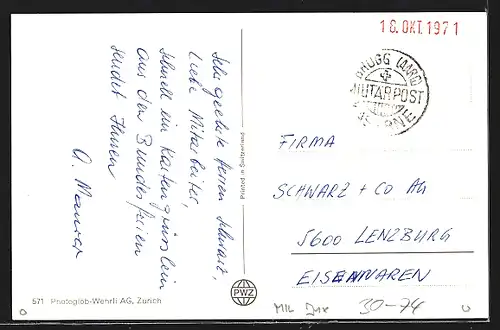 18. OKT. 1971
BRUGG (AARG)
MILITÄRPOST
KASERNE
Sehr geehrte Herren Schwarz,
Liebe Mitarbeiter,
Schnell ein Kartengrüsslein
aus den Bundesferien
sendet Ihnen
A. Maurer
Printed in Switzerland
FIRMA
SCHWARZ + CO AG
5600 LENZBURG
EISENWAREN
571 Photoglob-Wehrli AG, Zürich
PWZ
30-74